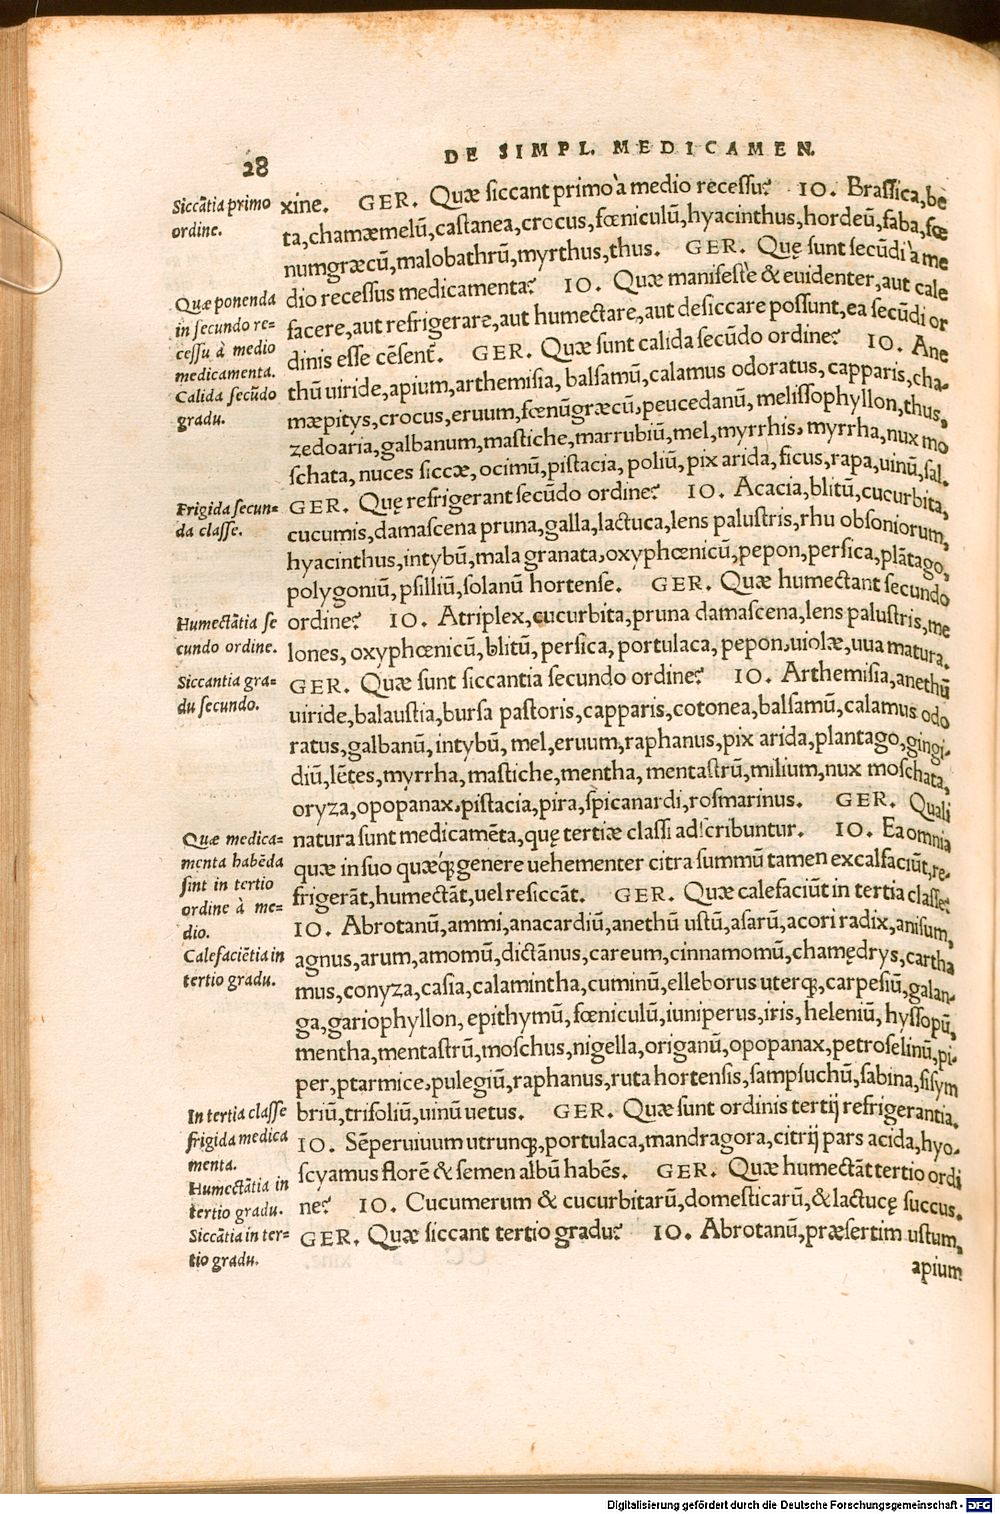 28
DE SIMPL. MEDICAMEN.
Siccãtia primo
ordine.
xine. GER. Quæ siccant primo à medio recessu? IO. Brassica, be
ta, chamæmelũ, castanea, crocus, fœniculũ, hyacinthus, hordeũ, faba, fœ
numgræcũ, malobathrũ, myrthus, thus. GER. Quę sunt secũdi à me
Quæ ponenda
in secundo re=
cessu à medio
medicamenta.
dio recessus medicamenta? IO. Quæ manifestè & euidenter, aut cale
facere, aut refrigerare, aut humectare, aut desiccare possunt, ea secũdi or
dinis esse cẽsent̃. GER. Quæ sunt calida secũdo ordine? IO. Ane
Calida secũdo
gradu.
thũ uiride, apium, arthemisia, balsamũ, calamus odoratus, capparis, cha-
mæpitys, crocus, eruum, fœnũgræcũ, peucedanũ, melissophyllon, thus,
zedoaria, galbanum, mastiche, marrubiũ, mel, myrrhis, myrrha, nux mo
schata, nuces siccæ, ocimũ, pistacia, poliũ, pix arida, ficus, rapa, uinũ, sal.
Frigida secun=
da classe.
GER. Quę refrigerant secũdo ordine? IO. Acacia, blitũ, cucurbita,
cucumis, damascena pruna, galla, lactuca, lens palustris, rhu obsoniorum,
hyacinthus, intybũ, mala granata, oxyphœnicũ, pepon, persica, plãtago,
polygoniũ, psilliũ, solanũ hortense. GER. Quæ humectant secundo
Humectãtia se
cundo ordine.
ordine? IO. Atriplex, cucurbita, pruna damascena, lens palustris, me
lones, oxyphœnicũ, blitũ, persica, portulaca, pepon, uiolæ, uua matura.
Siccantia gra=
du secundo.
GER. Quæ sunt siccantia secundo ordine? IO. Arthemisia, anethũ
uiride, balaustia, bursa pastoris, capparis, cotonea, balsamũ, calamus odo
ratus, galbanũ, intybũ, mel, eruum, raphanus, pix arida, plantago, gingi-
diũ, lẽtes, myrrha, mastiche, mentha, mentastrũ, milium, nux moschata,
oryza, opopanax, pistacia, pira, spicanardi, rosmarinus. GER. Quali
Quæ medica=
menta habẽda
sint in tertio
ordine à me=
dio.
natura sunt medicamẽta, quę tertiæ classi adscribuntur. IO. Ea omnia
quæ in suo quæq́; genere uehementer citra summũ tamen excalfaciũt, re-
frigerãt, humectãt, uel resiccãt. GER. Quæ calefaciũt in tertia classe?
IO. Abrotanũ, ammi, anacardiũ, anethũ ustũ, asarũ, acori radix, anisum,
Calefaciẽtia in
tertio gradu.
agnus, arum, amomũ, dictãnus, careum, cinnamomũ, chamędrys, cartha
mus, conyza, casia, calamintha, cuminũ, elleborus uterq;, carpesiũ, galan-
ga, gariophyllon, epithymũ, fœniculũ, iuniperus, iris, heleniũ, hyssopũ,
mentha, mentastrũ, moschus, nigella, origanũ, opopanax, petroselinũ, pi-
per, ptarmice, pulegiũ, raphanus, ruta hortensis, sampsuchũ, sabina, sisym
In tertia classe
frigida medica
menta.
briũ, trifoliũ, uinũ uetus. GER. Quæ sunt ordinis tertij refrigerantia.
IO. Sẽperuiuum utrunq;, portulaca, mandragora, citrij pars acida, hyo-
scyamus florẽ & semen albũ habẽs. GER. Quæ humectãt tertio ordi
Humectãtia in
tertio gradu.
ne? IO. Cucumerum & cucurbitarũ, domesticarũ, & lactucę succus.
Siccãtia in ter=
tio gradu.
GER. Quæ siccant tertio gradu? IO. Abrotanũ, præsertim ustum,
apium
Digitalisierung gefördert durch die Deutsche Forschungsgemeinschaft - DFG